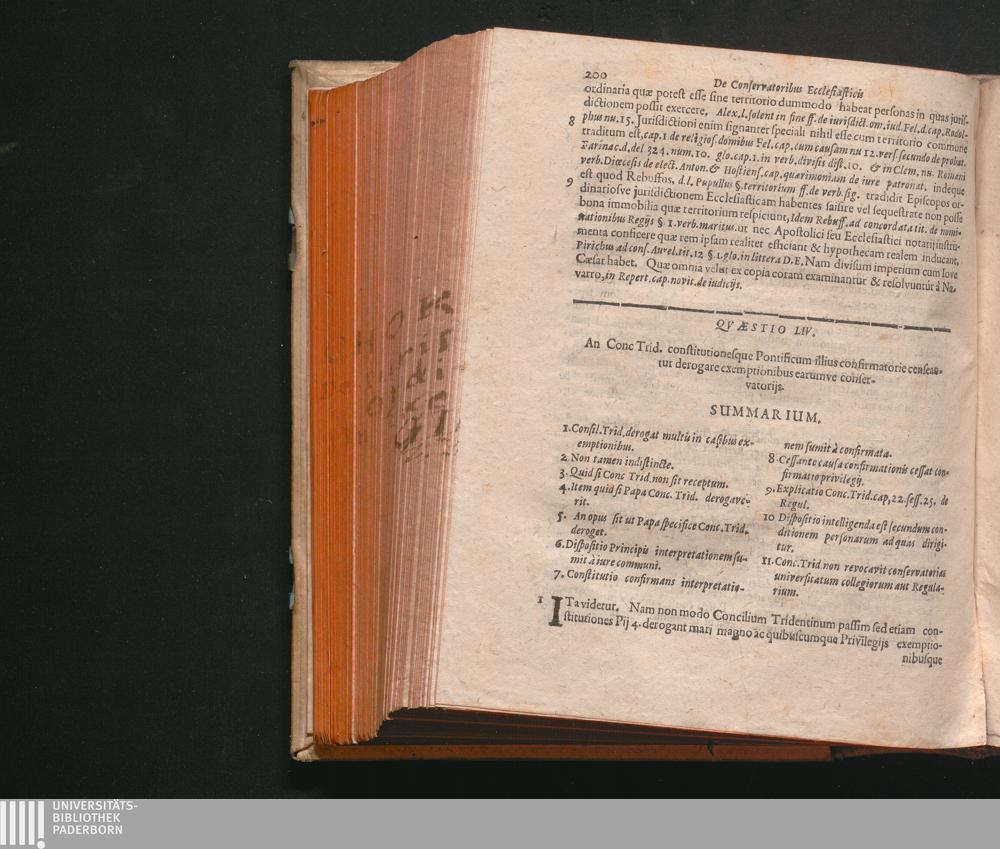 200
De Conſervatoribus Eccleſiaſticis
ordinaria quæ poteſt eſſe ſine territorio dummodo habeat perſonas in quas juriſ-
dictionem poſſit exercere, Alex. l. ſolent in fine ff. de iuriſdict. om. iud. Fel. d. cap. Rodol-
8 phus nu. 15. Jurisdictioni enim ſignanter ſpeciali nihil eſſe cum territorio commune
traditum eſt, cap. 1 de religioſ. domibus Fel. cap. cum cauſam nu 12. verſ. ſecundo de probat.
Farinac. d. del 324. num. 10. glo. cap. 1. in verb. diviſis diſt. 10. & in Clem. nu. Romani
verb. Diœceſis de elect. Anton. & Hoſtienſ. cap. quarimoniam de iure patronat. indeque
9 eſt quod Rebuffus. d. l. Pupullus §. territorium ff. de verb. ſig. tradidit Epiſcopos or-
dinarioſve jurisdictionem Eccleſiaſticam habentes ſaiſire vel ſequeſtrate non poſſe
bona immobilia quæ territorium reſpiciunt, Idem Rebuff. ad concordata tit. de nomi-
nationibus Regijs § 1. verb. maritus. ut nec Apoſtolici ſeu Eccleſiaſtici notarij inſtru-
menta conficere quæ rem ipſam realiter efficiant & hypothecam realem inducant,
Pirichus ad conſ. Aurel. tit. 12 §. 1. glo. in littera D. E. Nam diviſum imperium cum Iove
Cæſar habet. Quæ omnia velut ex copia coram examinantur & reſolvuntur à Na-
varro, in Repert. cap. novit. de iudicijs.
QVÆSTIO LIV.
An Conc Trid. conſtitutioneſque Pontificum illius confirmatorie cenſean-
tur derogare exemptionibus earumve conſer-
vatorijs.
SUMMARIUM.
1. Conſil. Trid. derogat multis in caſibus ex-
emptionibus.
2 Non tamen indiſtincte.
3. Quid ſi Conc Trid. non ſit receptum.
4. Item quid ſi Papa Conc. Trid. derogave-
rit.
5. An opus ſit ut Papa ſpecifice Conc. Trid.
deroget.
6. Diſpoſitio Principis interpretationem ſu-
mit à iure communi.
7. Conſtitutio confirmans interpretatio-
nem ſumit à confirmata.
8. Ceſſante cauſa confirmationis ceſſat con-
firmatio privilegij.
9. Explicatio Conc. Trid. cap, 22. ſeſſ. 25. de
Regul.
10 Diſpoſitio intelligenda eſt ſecundum con-
ditionem perſonarum ad quas dirigi-
tur.
11. Conc. Trid. non revocavit conſervatorias
univerſitatum collegiorum aut Regula-
rium.
1 ITa videtur. Nam non modo Concilium Tridentinum paſſim ſed etiam con-
ſtitutiones Pij 4. derogant mari magno ac quibuſcumque Privilegijs exemptio-
nibuſque
UNIVERSITÄTS-
BIBLIOTHEK
PADERBORN